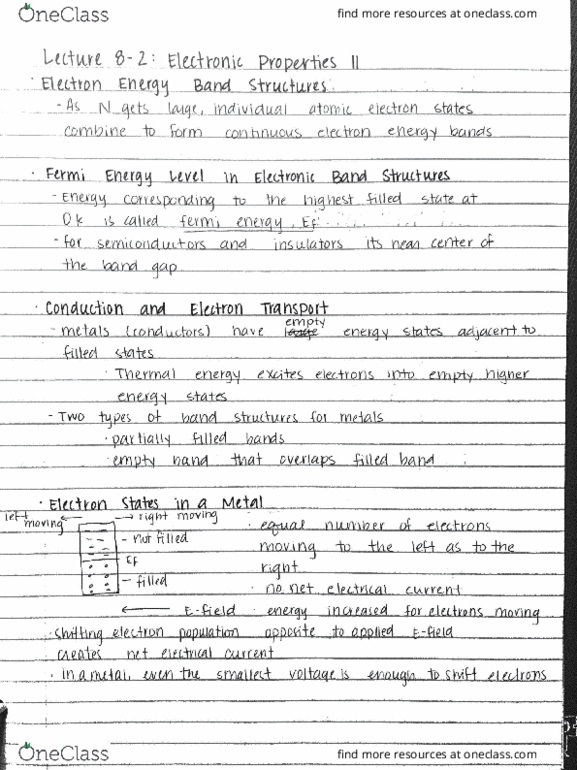 OneClass find more resources at oneclass.com
Lecture 8-2: Electronic Properties II
· Electron Energy Band Structures:
- As N gets large, individual atomic electron states
combine to form continuous electron energy bands
· Fermi Energy Level in Electronic Band Structures
- Energy corresponding to the highest filled state at
0k is called fermi energy, Ef
- for semiconductors and insulators its near center of
the band gap
· Conduction and Electron Transport
- metals (conductors) have empty energy states adjacent to
filled states
· Thermal energy excites electrons into empty higher
energy states
- Two types of band structures for metals
· partially filled bands
· empty band that overlaps filled band
· Electron States in a Metal
left moving ← → right moving
- not filled
Ef
- filled
· equal number of electrons
moving to the left as to the
right
· no net electrical current
← E-field · energy increased for electrons moving
opposite to applied E-field
· shifting electron population
creates net electrical current
· in a metal, even the smallest voltage is enough to shift electrons
OneClass find more resources at oneclass.com